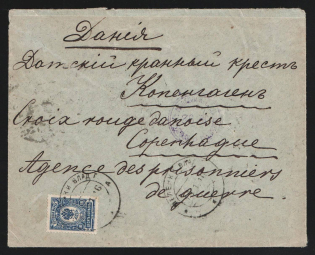 Данія
Датскій кранный крестъ
Копенгагенъ
Croix rouge danoise
Copenhague
Agence des prisonniers
de guerre.